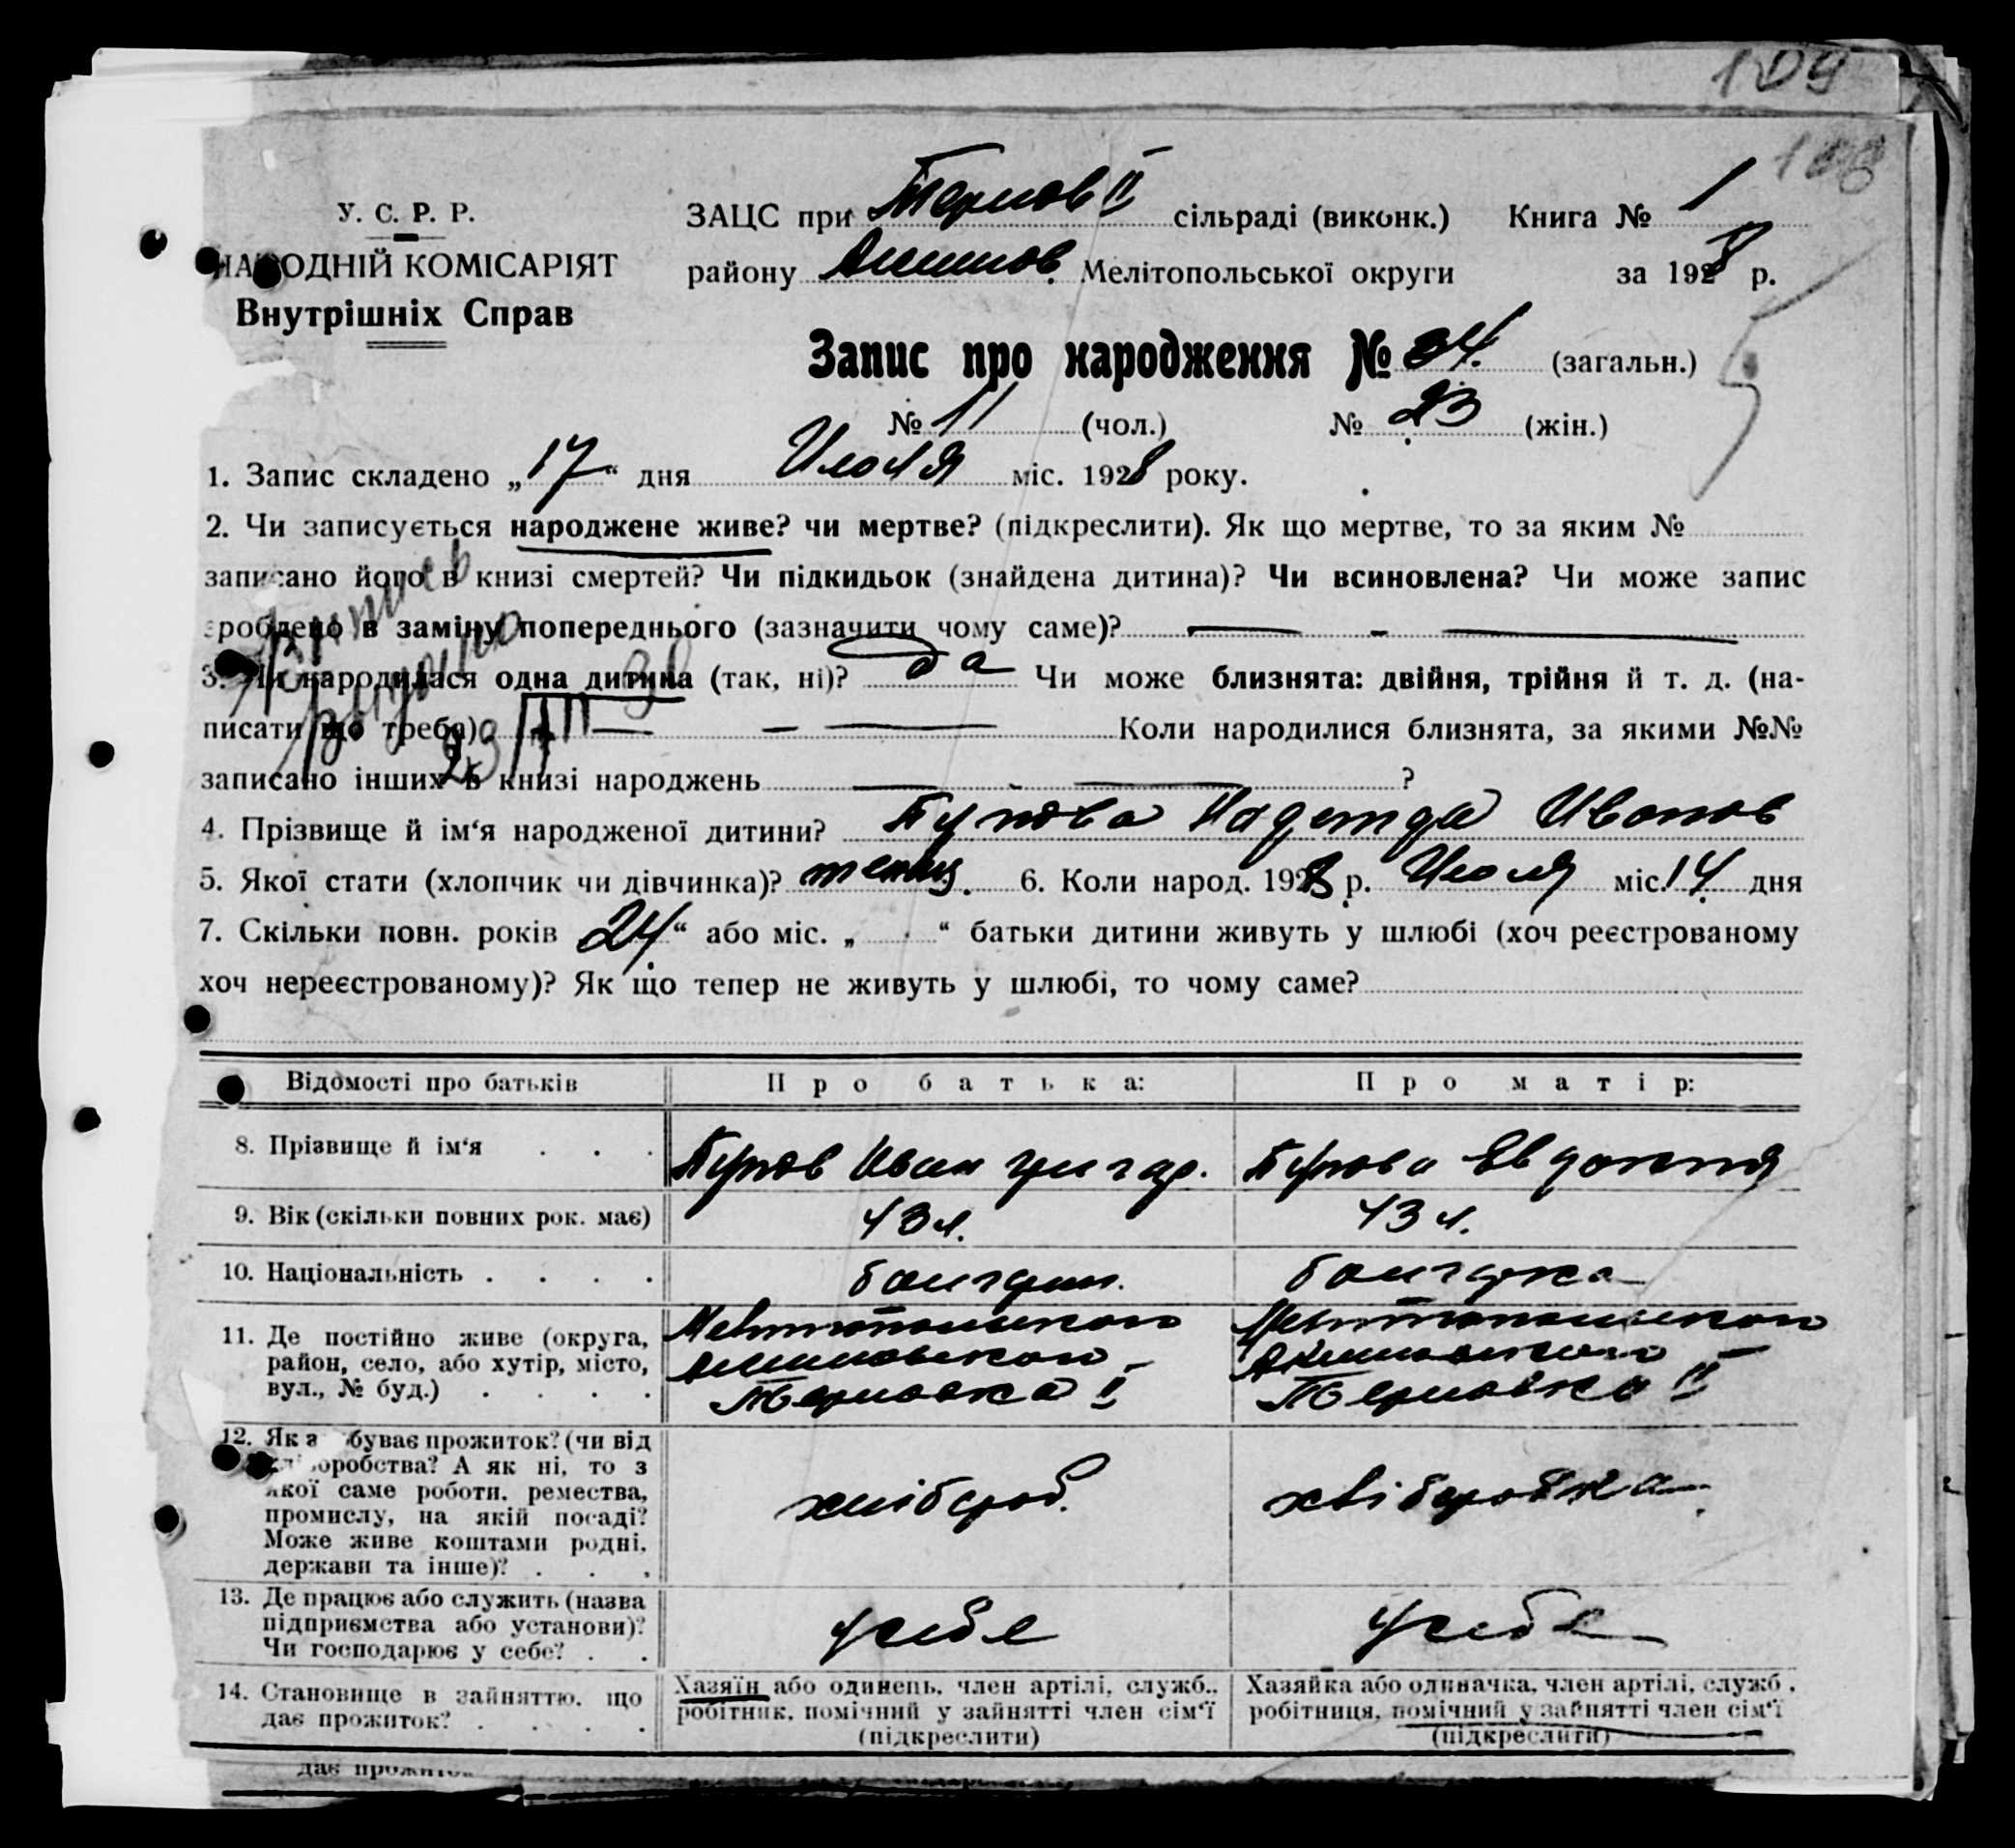 109
108
У. С. Р. Р.
НАРОДНІЙ КОМІСАРІЯТ
Внутрішніх Справ
ЗАЦС при Тернов II сільраді (виконк.) Книга № 1
району Акимов. Мелітопольської округи за 1928 р.
Запис про народження № 34. (загальн.)
№ 11 (чол.) № 23 (жін.)
1. Запис складено „17“ дня Июля міс. 1928 року.
2. Чи записується народжене живе? чи мертве? (підкреслити). Як що мертве, то за яким №
записано його в книзі смертей? Чи підкидьок (знайдена дитина)? Чи всиновлена? Чи може запис
зроблено в заміну попереднього (зазначити чому саме)?
3. Чи народилася одна дитина (так, ні)? да Чи може близнята: двійня, трійня й т. д. (на-
писати що треба) Коли народилися близнята, за якими №№
записано інших в книзі народжень ?
4. Прізвище й ім‘я народженої дитини? Пупова Надежда Иванов
5. Якої стати (хлопчик чи дівчинка)? женщ. 6. Коли народ. 1928 р. Июля міс. 14 дня
7. Скільки повн. років 24 “ або міс. „ “ батьки дитини живуть у шлюбі (хоч реєстрованому
хоч нереєстрованому)? Як що тепер не живуть у шлюбі, то чому саме?
Відомості про батьків Про батька: Про матір:
8. Прізвище й ім‘я Пупов Иван Григор. Пупова Евдокия
9. Вік (скільки повних рок. має) 43 л. 43 л.
10. Національність болгарин. болгарка
11. Де постійно живе (округа, Мелитопольского Мелитопольского
район, село, або хутір, місто, Акимовского Акимовского
вул., № буд.) Терновка II Терновка II
12. Як здобуває прожиток? (чи від
хліборобства? А як ні, то з
якої саме роботи, ремества, хлібороб. хліборобка
промислу, на якій посаді?
Може живе коштами родні,
держави та інше)?
13. Де працює або служить (назва
підприємства або установи)? у себе у себе
Чи господарює у себе?
14. Становище в зайняттю, що Хазяїн або одинець, член артілі, служб., Хазяйка або одиначка, член артілі, служб.,
дає прожиток? робітник, помічний у зайнятті член сім‘ї робітниця, помічний у зайнятті член сім‘ї
(підкреслити) (підкреслити)
дає прожиток